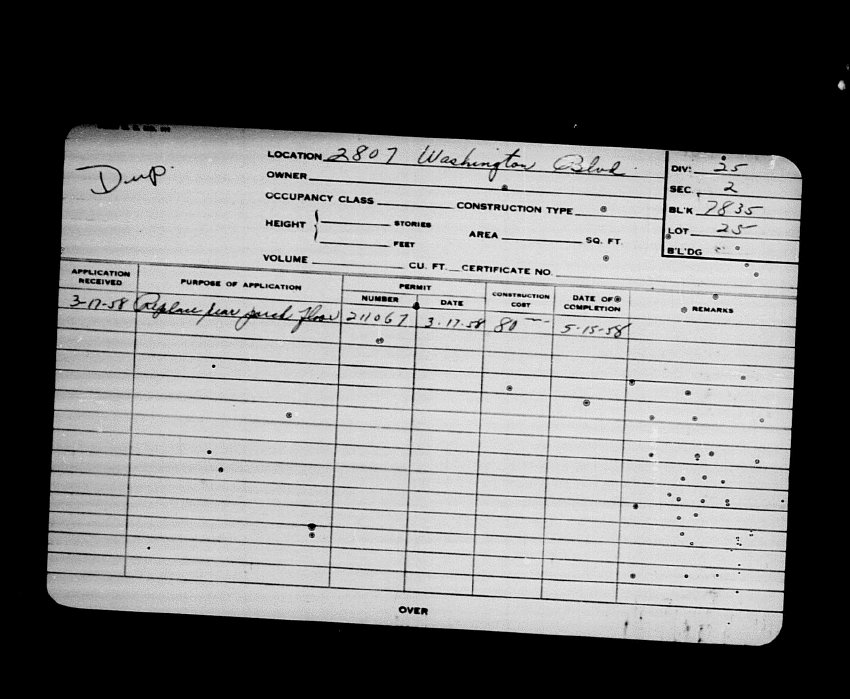 Dup.
LOCATION 2807 Washington Blvd.
OWNER
OCCUPANCY CLASS CONSTRUCTION TYPE
HEIGHT STORIES
FEET
AREA SQ. FT.
VOLUME CU. FT. CERTIFICATE NO.
DIV: 25
SEC. 2
BL'K 7835
LOT 25
B'L'DG
APPLICATION RECEIVED PURPOSE OF APPLICATION PERMIT NUMBER DATE CONSTRUCTION COST DATE OF COMPLETION REMARKS
3-17-58 Replace rear porch floor 211067 3-17-58 80 — 5-15-58
OVER